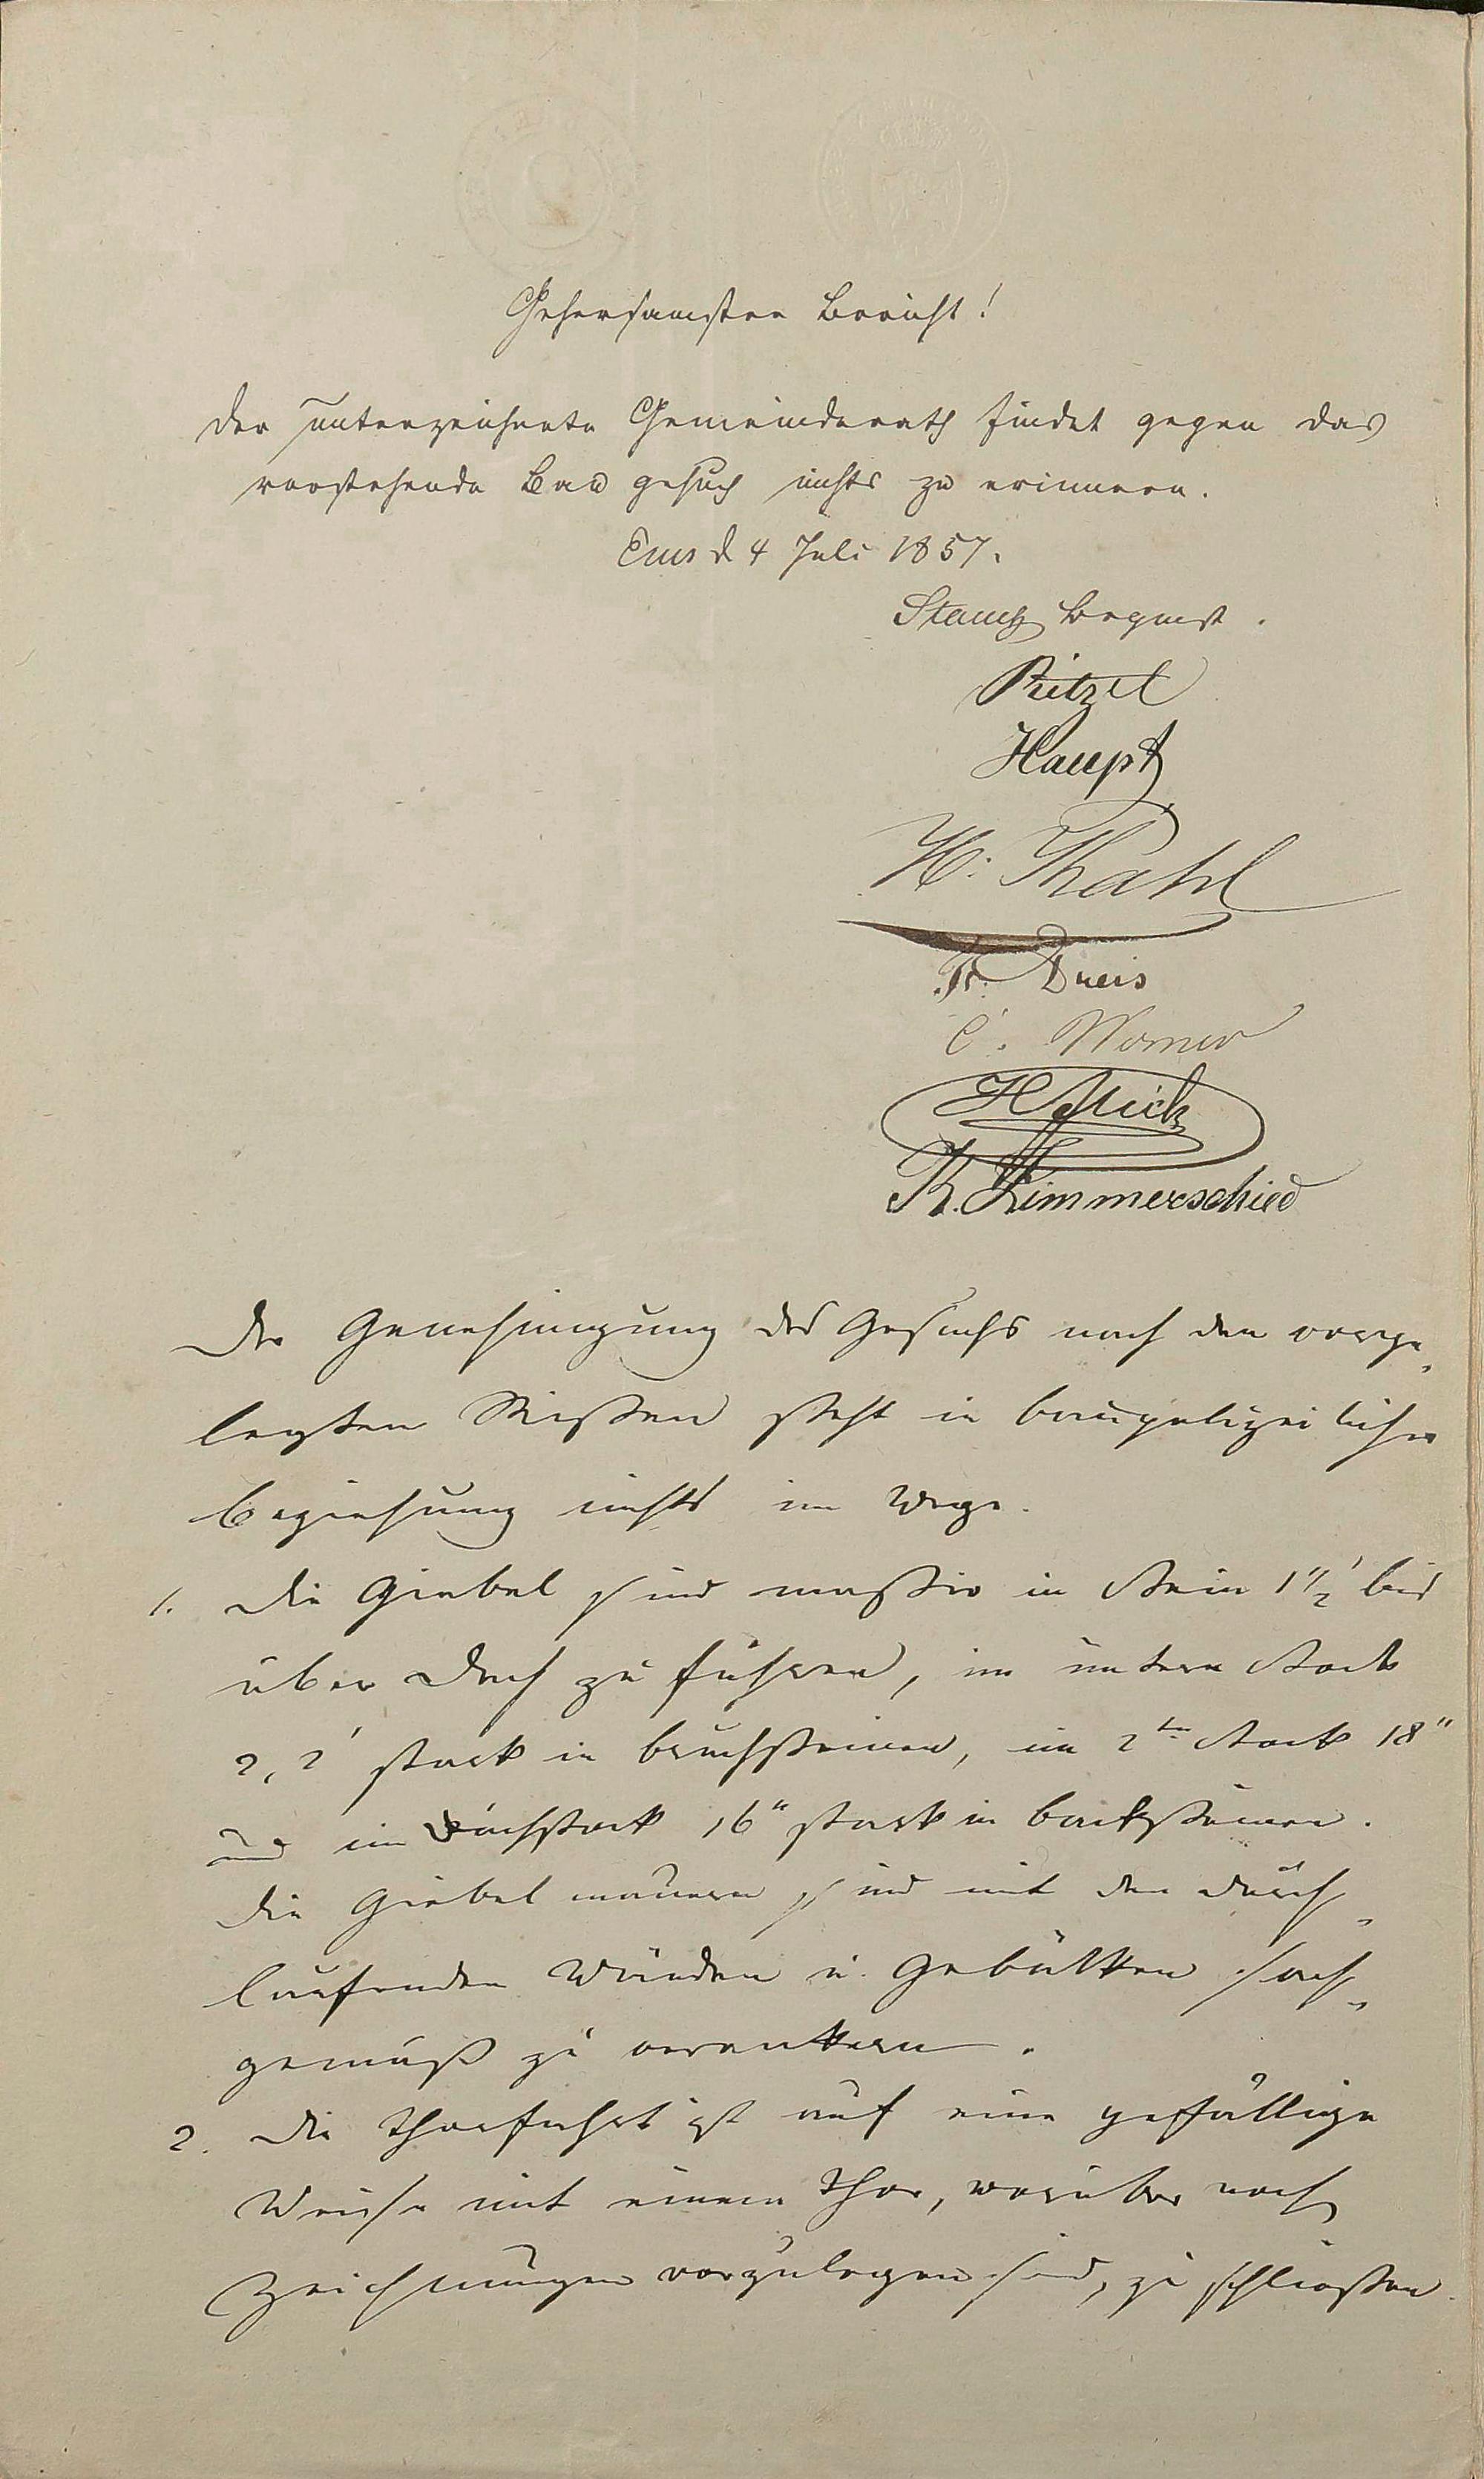 Gehorsamster Bericht!
Der unterzeichnete Gemeinderath findet gegen das
vorstehende Bau gesuch nichts zu erinnern.
Ems d 4 Juli 1857.
Ritzel
Haupt
H. Thahl
Fr. Dreis
C. Werner
K. Zimmerschied
Der Genehmigung des Gesuchs nach den vorge„
legten Rissen steht in baupolizeilicher
Beziehung nichts im Wege.
1. Die Giebel sind massiv in Stein 1 1/2' bis
über Dach zu führen, im untern Stock
2,2' stark in Bruchsteinen, im 2ten Stock 18"
und im Dachstock 16" stark in Backsteinen.
Die Giebelmauern sind mit den durch„
laufenden Wänden u. Gebälken sach„
gemäß zu verankern.
2. Die Thorfahrt ist auf eine gefällige
Weise mit einem Thor, worüber noch
Zeichnungen vorzulegen sind, zu schließen.